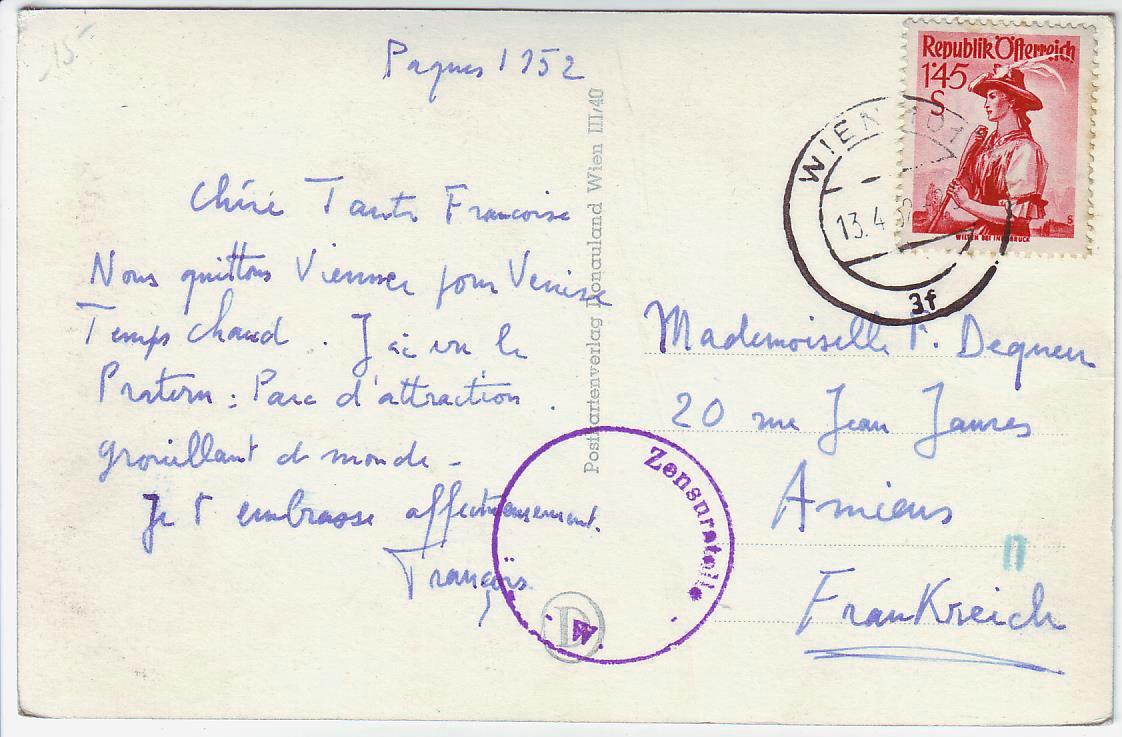 15-
Paques 1952
Chère Tante Francoise
Nous quittons Vienne pour Venise
Temps chaud. J'ai vu le
Pratern : Parc d'attraction.
grouillant de monde -
Je t'embrasse affectueusement.
François
Postkartenverlag Donauland Wien III/40
D
Zensurstelle
Republik Österreich
1'45
S
WILTEN BEI INNSBRUCK
S
WIEN 101
13.4
3f
Mademoiselle F.
20 rue Jean Jaures
Amiens
FranKreich